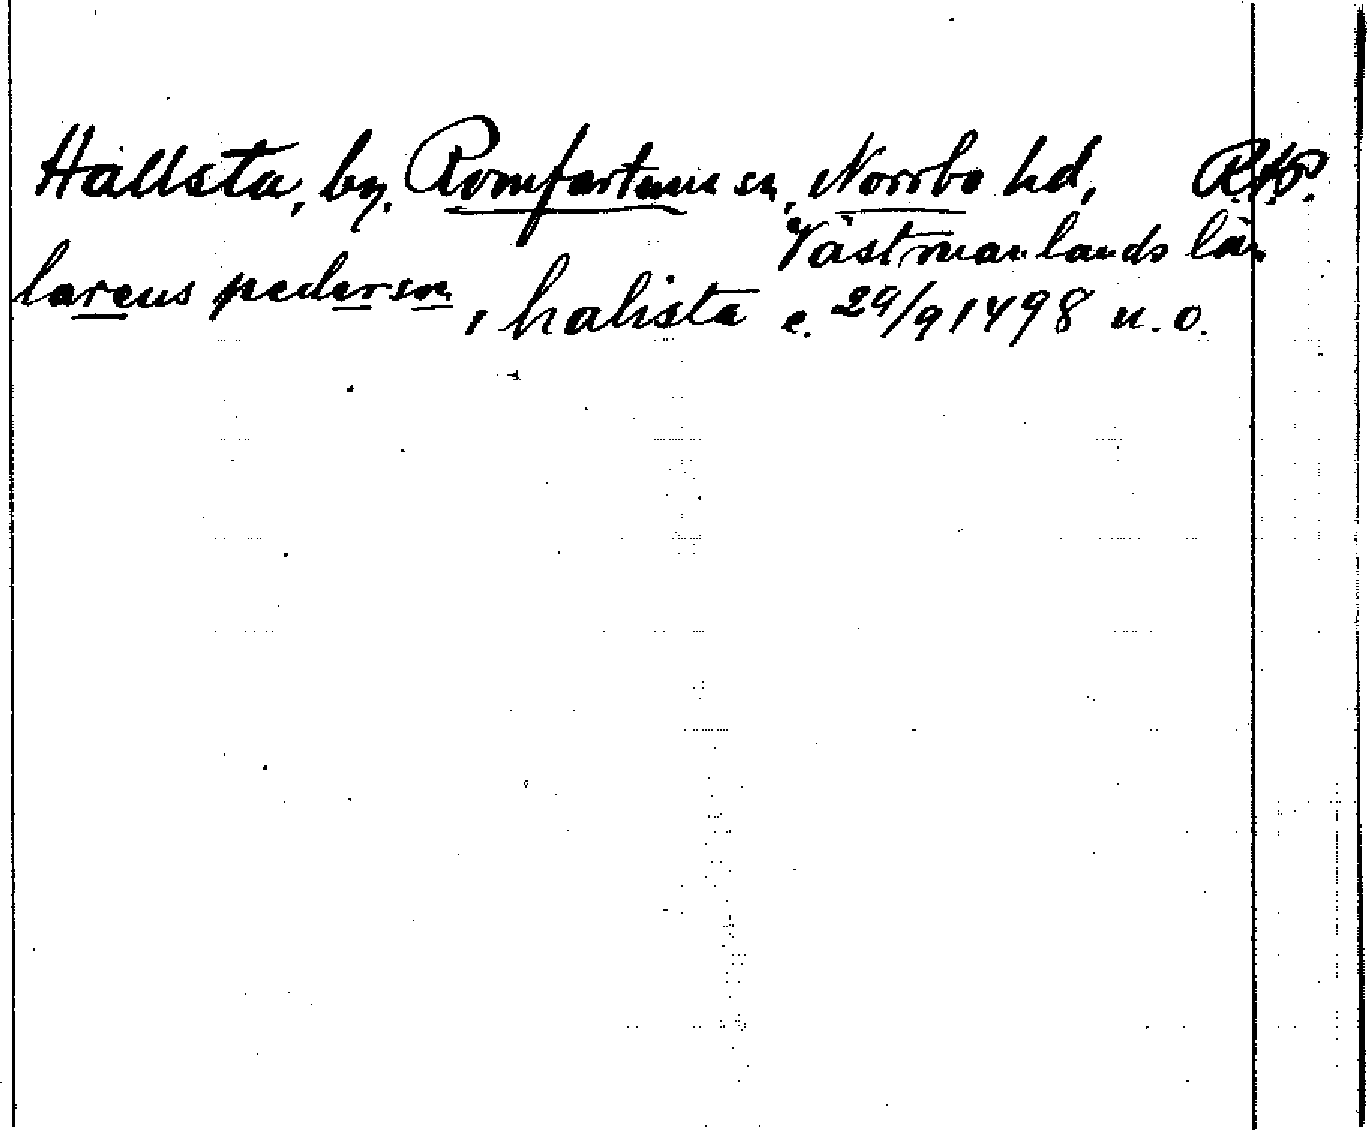 Hallsta, by. Romfartuna sn, Norrbo hd,
Västmanlands län
lareus pederson, i halista c. 29/9 1498 u. o.